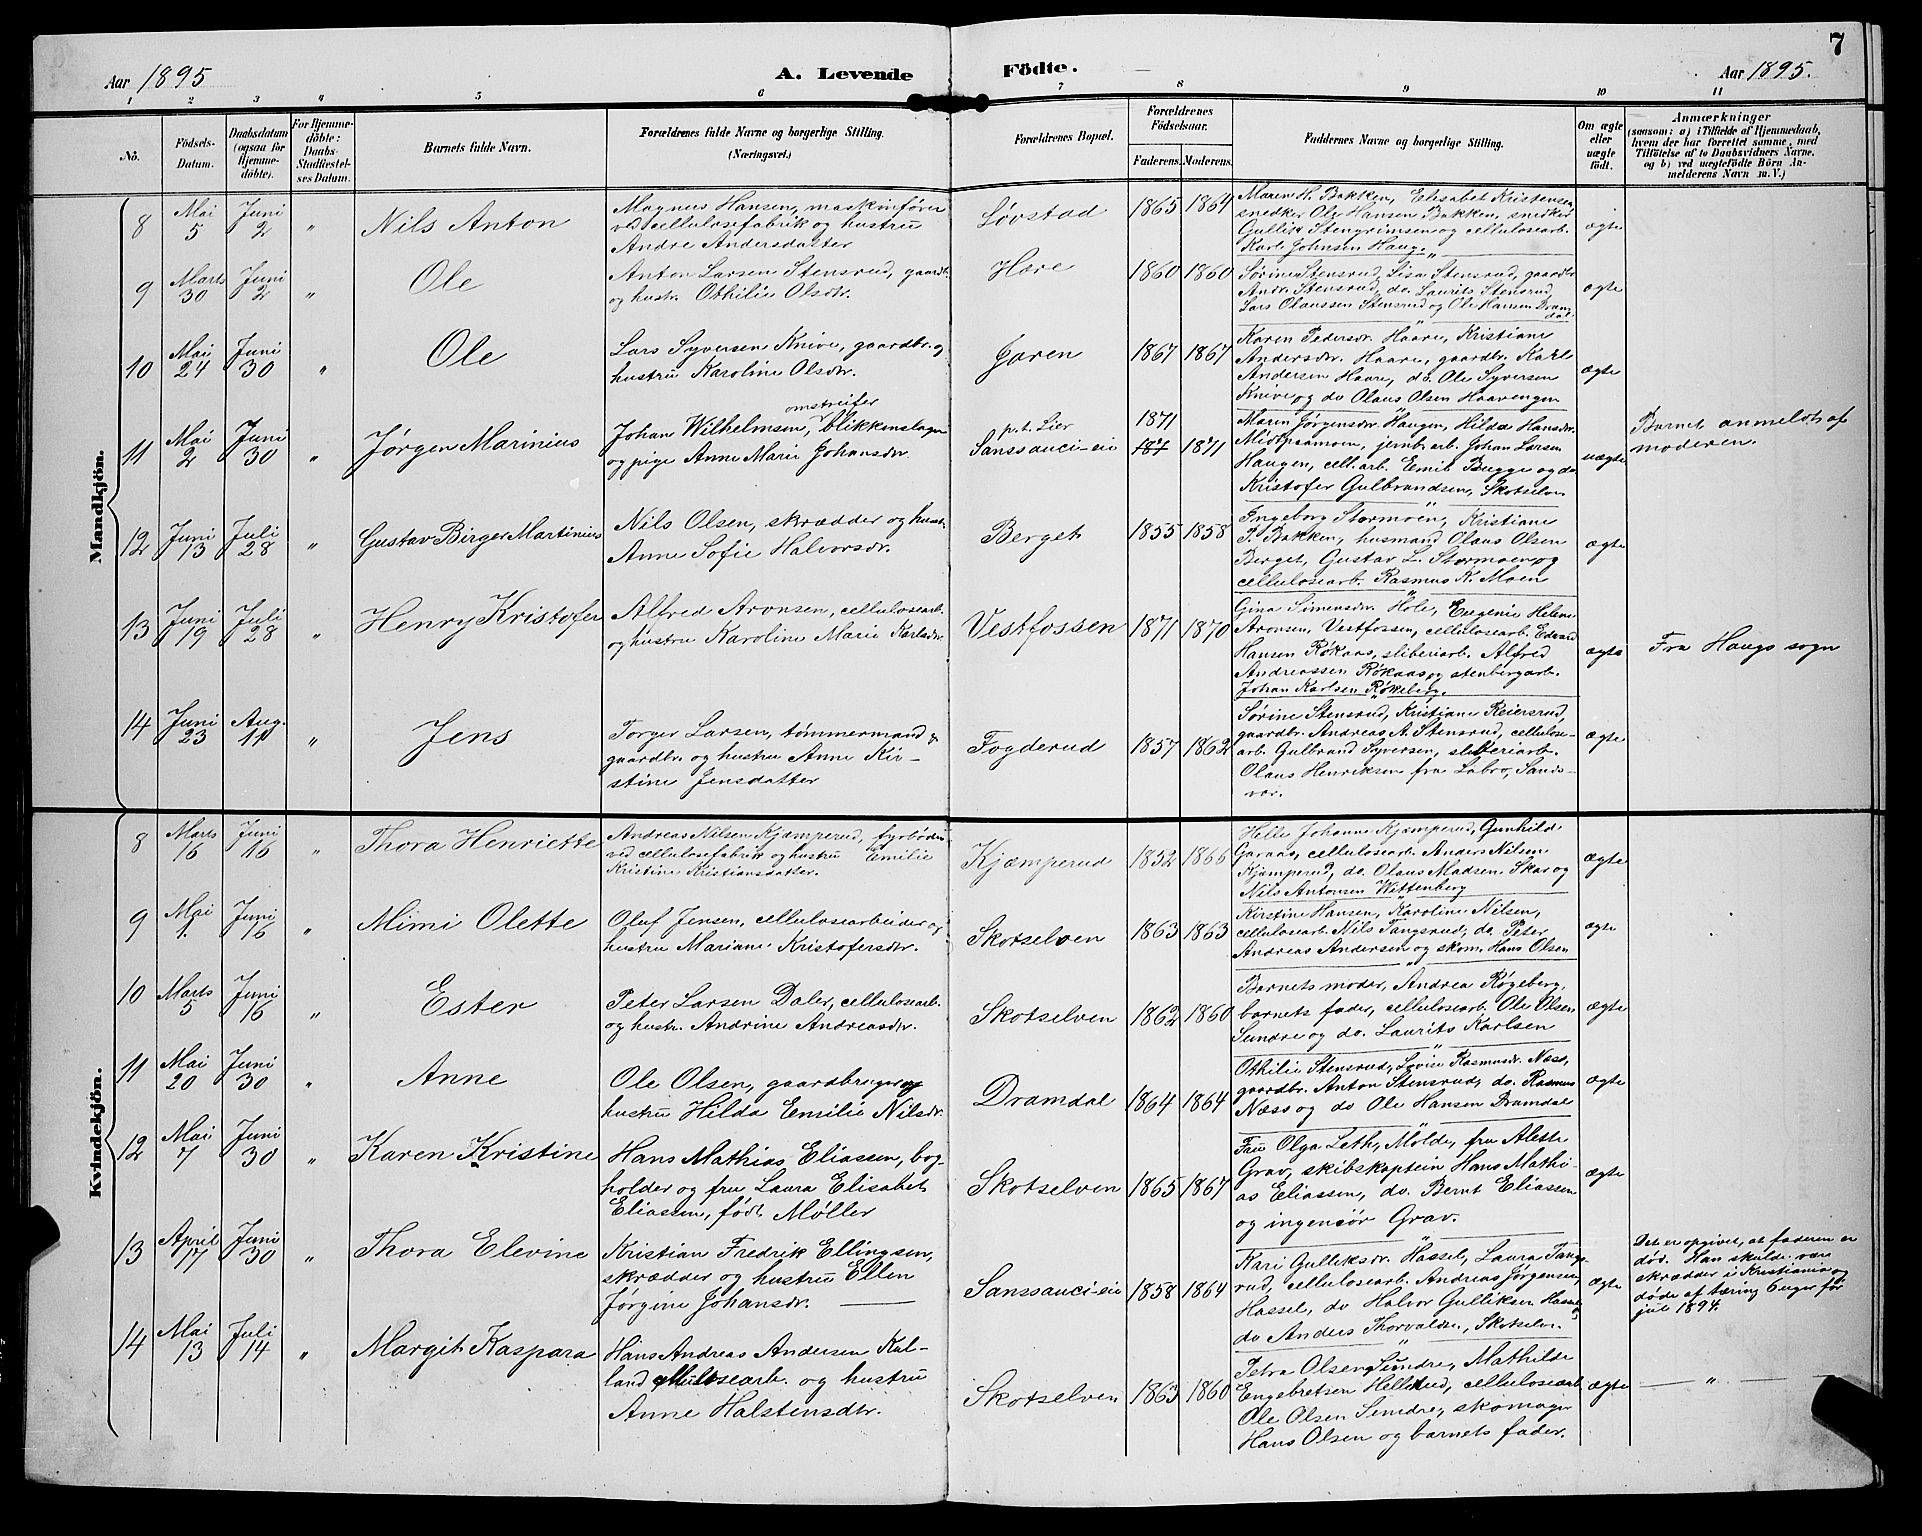 7
Aar 1895
A. Levende Födte.
Aar 1895.
1 2 3 4 5 6 7 8 9 10 11
No.
Födsels-Datum.
Daabsdatum (ogsaa for Hjemme-döbte).
For Hjemme-döbte: Daabs-Stadfæstel-ses Datum.
Barnets fulde Navn.
Forældrenes fulde Navne og borgerlige Stilling.
(Næringsvei.)
Forældrenes Bopæl.
Forældrenes Födselsaar.
Faderens. Moderens.
Faddernes Navne og borgerlige Stilling.
Om ægte eller uægte födt.
Anmærkninger
(saasom: a) i Tilfælde af Hjemmedaab,
hvem der har forrettet samme, med
Tilföielse af to Daabsvidners Navne,
og b) ved uægtefödte Börn An-
melderens Navn m. V.)
Mandkjön.
8 Mai 5 Juni 2 " Nils Anton
Magnus Hansen, maskinfører
ved cellulosefabrik og hustru
Andre Andersdatter
Løvstad 1865 1864
Maren H. Bakken, Elisabet Kristensen,
snedker Ole Hansen Bakken, snedker
Gullik Stengrimsen og cellulosearb.
Karl Johnsen Haug.
ægte
9 Marts 30 Juni 2 " Ole
Anton Larsen Stensrud, gaardbr.
og hustr. Othilie Olsdr.
Hære 1860 1860
Sørine Stensrud, Lisa Stensrud, gaardbr.
Andr. Stensrud, do. Laurits Stensrud,
Lars Olaussen Stensrud og Ole Hansen Dram-
dal.
ægte
10 Mai 24 Juni 30 " Ole
Lars Syversen Knive, gaardbr. og
hustru Karoline Olsdr.
Jaren 1867 1867
Karen Pedersdr. Haare, Kristiane
Andersdr. Haare, gaardbr. Karl
Andersen Haare, do. Ole Syversen
Knive og do Olaus Olsen Haavengen
ægte
11 Mai 2 Juni 30 " Jørgen Marinius
omstreifer
Johan Wilhelmsen, blikkenslager
og pige Anne Marie Johansdr.
p.t. Lier
Sanssouci-eie 1871 187 1871
Maren Jørgensdr. Haugen, Hilda Hansdr.
Midtskamoen, jernb.arb. Johan Larsen
Haugen, cell.arb. Emil Bugge og do
Kristofer Gulbrandsen, Skotselv.
uægte
Barnet anmeldt af
moderen.
12 Juni 13 Juli 28 " Gustav Birger Martinius
Nils Olsen, skrædder og hustr.
Anne Sofie Halvorsdr.
Berget 1855 1858
Ingeborg Stormoen, Kristiane
P. Bakken, husmand Olaus Olsen
Berget, Gustav L. Stormoen og
cellulosearb. Rasmus K. Moen
ægte
13 Juni 19 Juli 28 " Henry Kristofer
Alfred Aronsen, cellulosearb.
og hustru Karoline Marie Karlsdr.
Vestfossen 1871 1870
Gina Simensdr. Hole, Eugenie Helene
Aronsen, Vestfossen, cellulosearb. Edvard
Hansen Røkaas, sliberiarb. Alfred
Andreassen Røkaas og stenbergarb.
Johan Karlsen Røkeberg.
ægte
Fra Haugs sogn
14 Juni 23 Aug. 11 " Jens
Torger Larsen, tømmermand &
gaardbr. og hustru Anne Kir-
stine Jensdatter
Fogderud 1857 1862
Sørine Stensrud, Kristiane Reiersrud,
gaardbr. Andreas A. Stensrud, cellulose-
arb. Gulbrand Syversen, sliberiarb.
Olaus Henriksen fra Labro, Sands-
vær.
ægte
Kvindekjön.
8 Marts 16 Juni 16 " Thora Henriette
Andreas Nilsen Kjæmperud, fyrbøder
ved cellulosefabrik og hustru Emilie
Kristine Kristiansdatter.
Kjæmperud 1852 1866
Helle Johanne Kjæmperud, Gunhild
Garaas, cellulosearb. Anders Nilsen
Kjæmperud, do. Olaus Madsen Skar og
Nils Antonsen Wittenberg
ægte
9 Mai 1. Juni 16 " Mimi Olette
Oluf Jensen, cellulosearbeider og
hustru Mariane Kristofersdr.
Skotselven 1863 1863
Kirstine Hansen, Karoline Nilsen,
cellulosearb. Nils Tangsrud, do. Peter
Andreas Andersen og skom. Hans Olsen
ægte
10 Marts 5 Juni 16 " Ester
Peter Larsen Daler, cellulosearb.
og hustr. Andrine Andreasdr.
Skotselven 1862 1860
Barnets moder, Andrea Røgeberg,
barnets fader, cellulosearb. Ole Olsen
Sundre og do. Laurits Karlsen
ægte
11 Mai 20 Juni 30 " Anne
Ole Olsen, gaardbruger og
hustru Hilda Emilie Nilsdr.
Dramdal 1864 1864
Othilie Stensrud, Lovise Rasmusdr. Næss,
gaardbr. Anton Stensrud, do. Rasmus
Næss og do Ole Hansen Dramdal
ægte
12 Mai 7 Juni 30 " Karen Kristine
Hans Mathias Eliassen, bog-
holder og fru Laura Elisabet
Eliassen, født Møller
Skotselven 1865 1867
Fru Olga Leth, Molde, fru Alette
Grav, skibskaptein Hans Mathi-
as Eliassen, do. Bernt Eliassen
og ingeniør Grav.
ægte
13 April 17 Juni 30 " Thora Elevine
Kristian Fredrik Ellingsen,
skrædder og hustru Ellen
Jørgine Johansdr.
Sanssouci-eie 1858 1864
Kari Gulliksdr. Hassel, Laura Tangs-
rud, cellulosearb. Andreas Jørgensen
Hassel, do Halvor Gulliksen Hassel,
do Anders Thorvaldsen, Skotselv.
ægte
Det er opgivet, at faderen er
død. Han skulde være
skrædder i Kristiania og
døde af tæring 6 uger før
jul 1894.
14 Mai 13 Juli 14 " Margit Kaspara
Hans Andreas Andersen Kal-
land cellulosearb. og hustru
Anne Halstensdtr.
Skotselven 1863 1860
Petra Olsen Sundre, Mathilde
Engebretsen Hellerud, cellulosearb.
Ole Olsen Sundre, skomager
Hans Olsen og barnets fader.
ægte
— " —